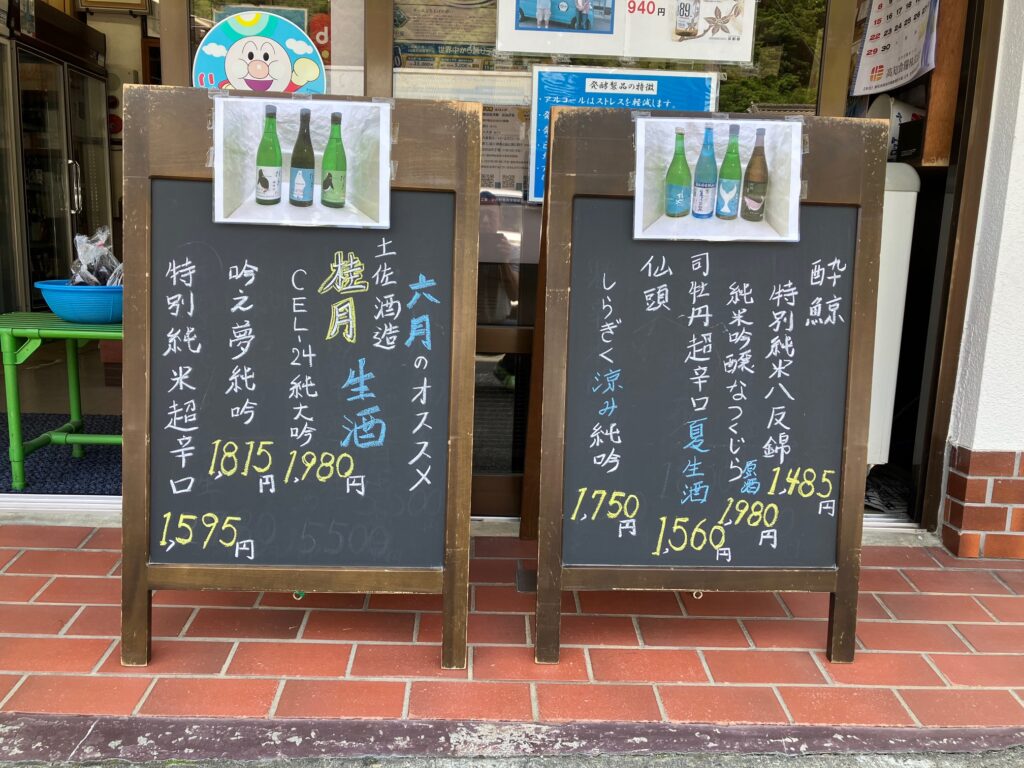 六月のオススメ
土佐酒造
桂月 生酒
CEL-24 純大吟
1,980円
吟之夢純吟
1,815円
特別純米超辛口
1,595円
酔鯨
特別純米八反錦
1,485円
純米吟醸なつくじら
原酒
1,980円
司牡丹超辛口夏生酒
1,560円
仙頭
しらぎく涼み純吟
1,750円
940円
発酵製品の特徴
・アルコールはストレスを軽減します。